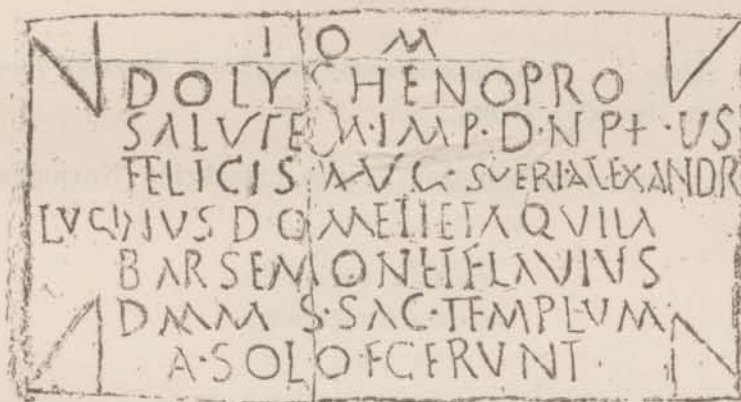 I O M
DOLYCHENO PRO
SALVTEM·IMP·D·N P+·US
FELICIS AVG·SVERI·ALEXANDR
LVCIVS DOMETI ET AQVILA
BARSEMON ET FLAVIVS
DMM S·SAC·TEMPLUM
A·SOLO·FCERVNT·